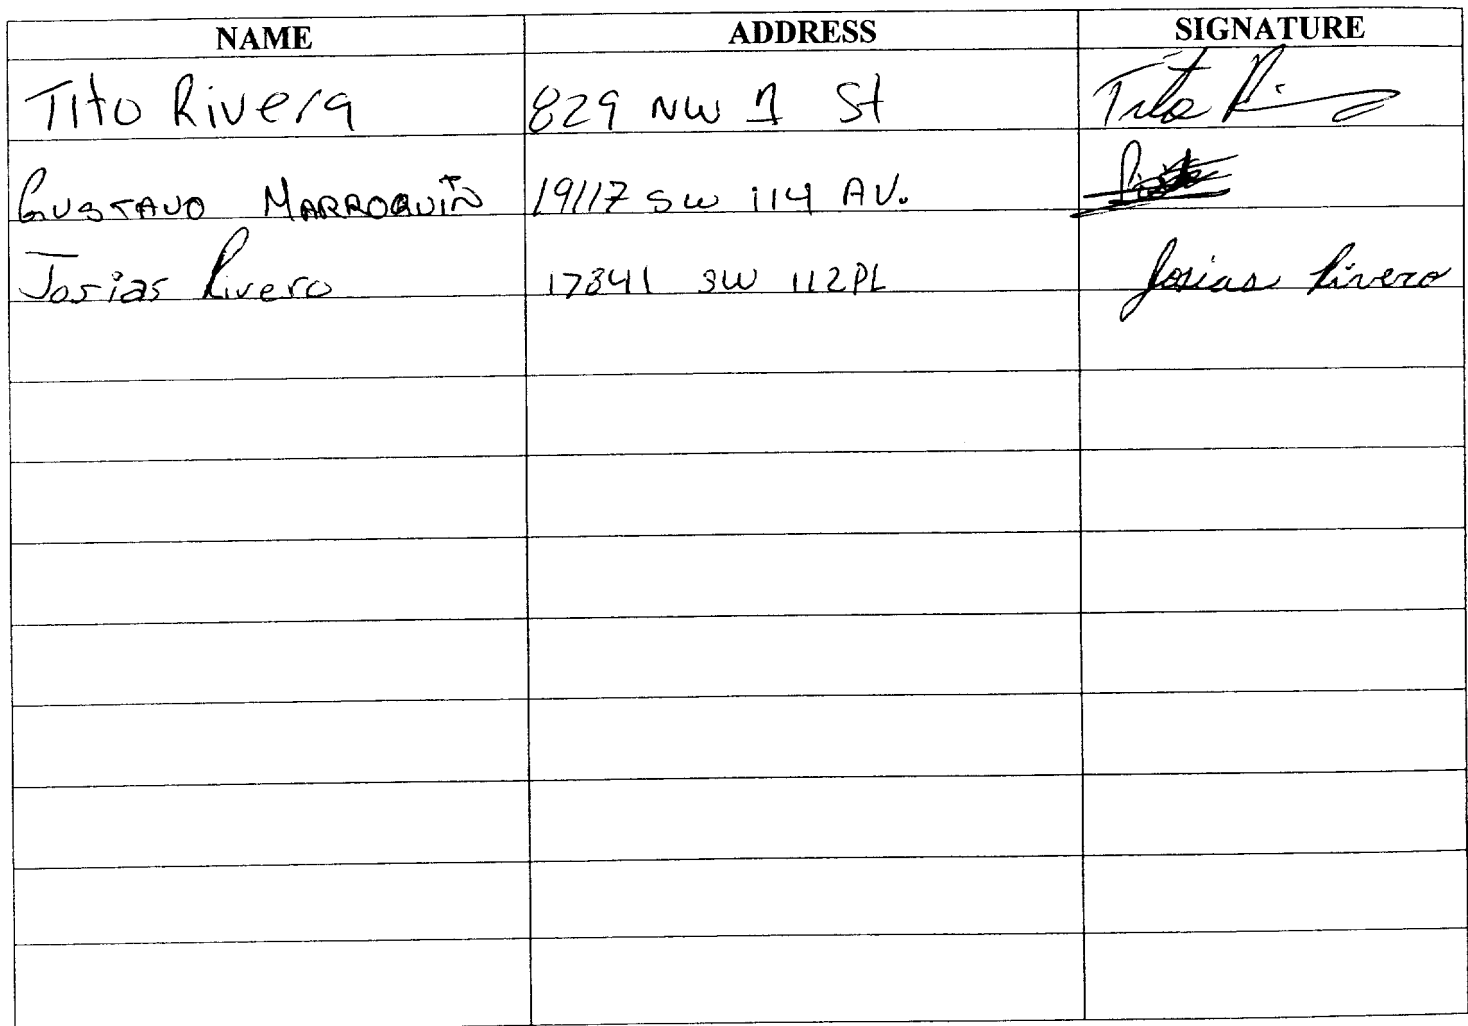 NAME ADDRESS SIGNATURE
Tito Rivera 829 NW 1 St Tito
Gustavo Marroquin 19117 SW 114 AV.
Josias Rivero 17841 SW 112PL Josias Rivero